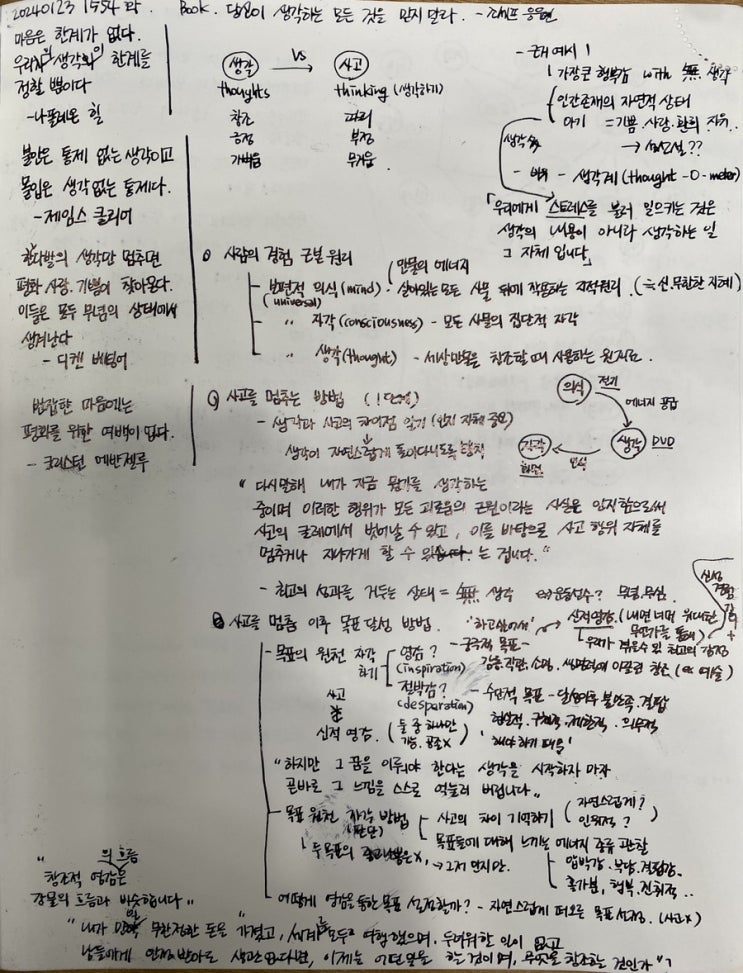 20240123 1554 막. Book. 당신이 생각하는 모든 것을 믿지 말라. - 조세프 응우옌
마음은 한계가 없다.
우리의 생각이 한계를
정할 뿐이다
- 나폴레온 힐
불안은 통제 없는 생각이고
몰입은 생각 없는 통제다.
- 제임스 클리어
한 다발의 생각만 멈추면
평화 사랑. 기쁨이 찾아온다.
이들은 모두 무념의 상태에서
생겨난다
- 디켄 베팅어
번잡한 마음에는
평화를 위한 여백이 없다.
- 크리스틴 에반젤루
생각 vs 사고
thoughts thinking (생각하기)
창조 파괴
긍정 부정
가벼움 무거움
- 근래 예시!
가장 큰 행복감 with 無 생각
인간존재의 자연적 상태
아기 = 기쁨. 사랑. 환희 자유..
생각 → 성선설??
- 비유 - 생각계 (thought-O-meter)
「우리에게 스트레스를 불러 일으키는 것은
생각의 내용이 아니라 생각하는 일
그 자체입니다」
사람의 경험 근본 원리
만물의 에너지
- 보편적 의식 (mind) · 살아있는 모든 사물 뒤에 작용하는 지적원리. (≒신. 무한한 지혜)
(universal)
- 〃 자각 (consciousness) - 모든 사물의 집단적 자각
- 〃 생각 (thought) - 세상만물을 창조할 때 사용하는 원재료.
사고를 멈추는 방법 (1단계)
- 생각과 사고의 차이점 알기 (인지 자체 중요)
생각이 자연스럽게 돌아다니도록 방치
의식 전기
에너지 공급
생각 DVD
인식
감각
화면
" 다시말해 내가 지금 뭔가를 생각하는
중이며 이러한 행위가 모든 괴로움의 근원이라는 사실을 인지함으로써
사고의 굴레에서 벗어날 수 있고, 이를 바탕으로 사고 행위 자체를
멈추거나 지나가게 할 수 있는 겁니다. "
- 최고의 성과를 거두는 상태 = 無 생각 ex) 운동선수? 무념. 무심.
사고를 멈춤 이후 목표 달성 방법.
'하고싶어서' → 신적영감. (내면 너머 위대한
무언가를 통해)
우리가 겪을 수 있는 최고의 감정
- 목표의 원천 자각
하기
영감? - 궁극적 목표 -
(inspiration) 감흥 직관. 소명. 세상 창조 (ex 예술)
절박감? - 수단적 목표 - 달성이후 불만족. 결핍
(desparation) 현실적. 구체적. 제한적. 의무적
'해야 하기 때문'
사고
신적 영감. (둘 중 하나만
가능. 공존X)
" 하지만 그 꿈을 이뤄야 한다는 생각을 시작하자 마자
곧바로 그 느낌을 스스로 억눌러 버립니다. "
- 목표 원천 자각 방법
(판단)
사고의 차이 기억하기 (자연스럽게?
인위적?
목표들에 대해 느끼는 에너지 종류 관찰
압박감. 부담. 결핍감.
홀가분, 행복. 진취적..
- 어떻게 영감을 통한 목표 설정할까? - 자연스럽게 떠오른 목표 설정. (사고X)
" 창조적 영감의 흐름은
강물의 흐름과 비슷합니다 "
" 내가 만일 무한정한 돈을 가졌고, 세계를 모두 여행했으며, 두려워할 일이 없고
남들에게 인정받아도 상관없다면, 이제는 어떤 일을 할 것이며, 무엇을 창조하는 것인가 "?